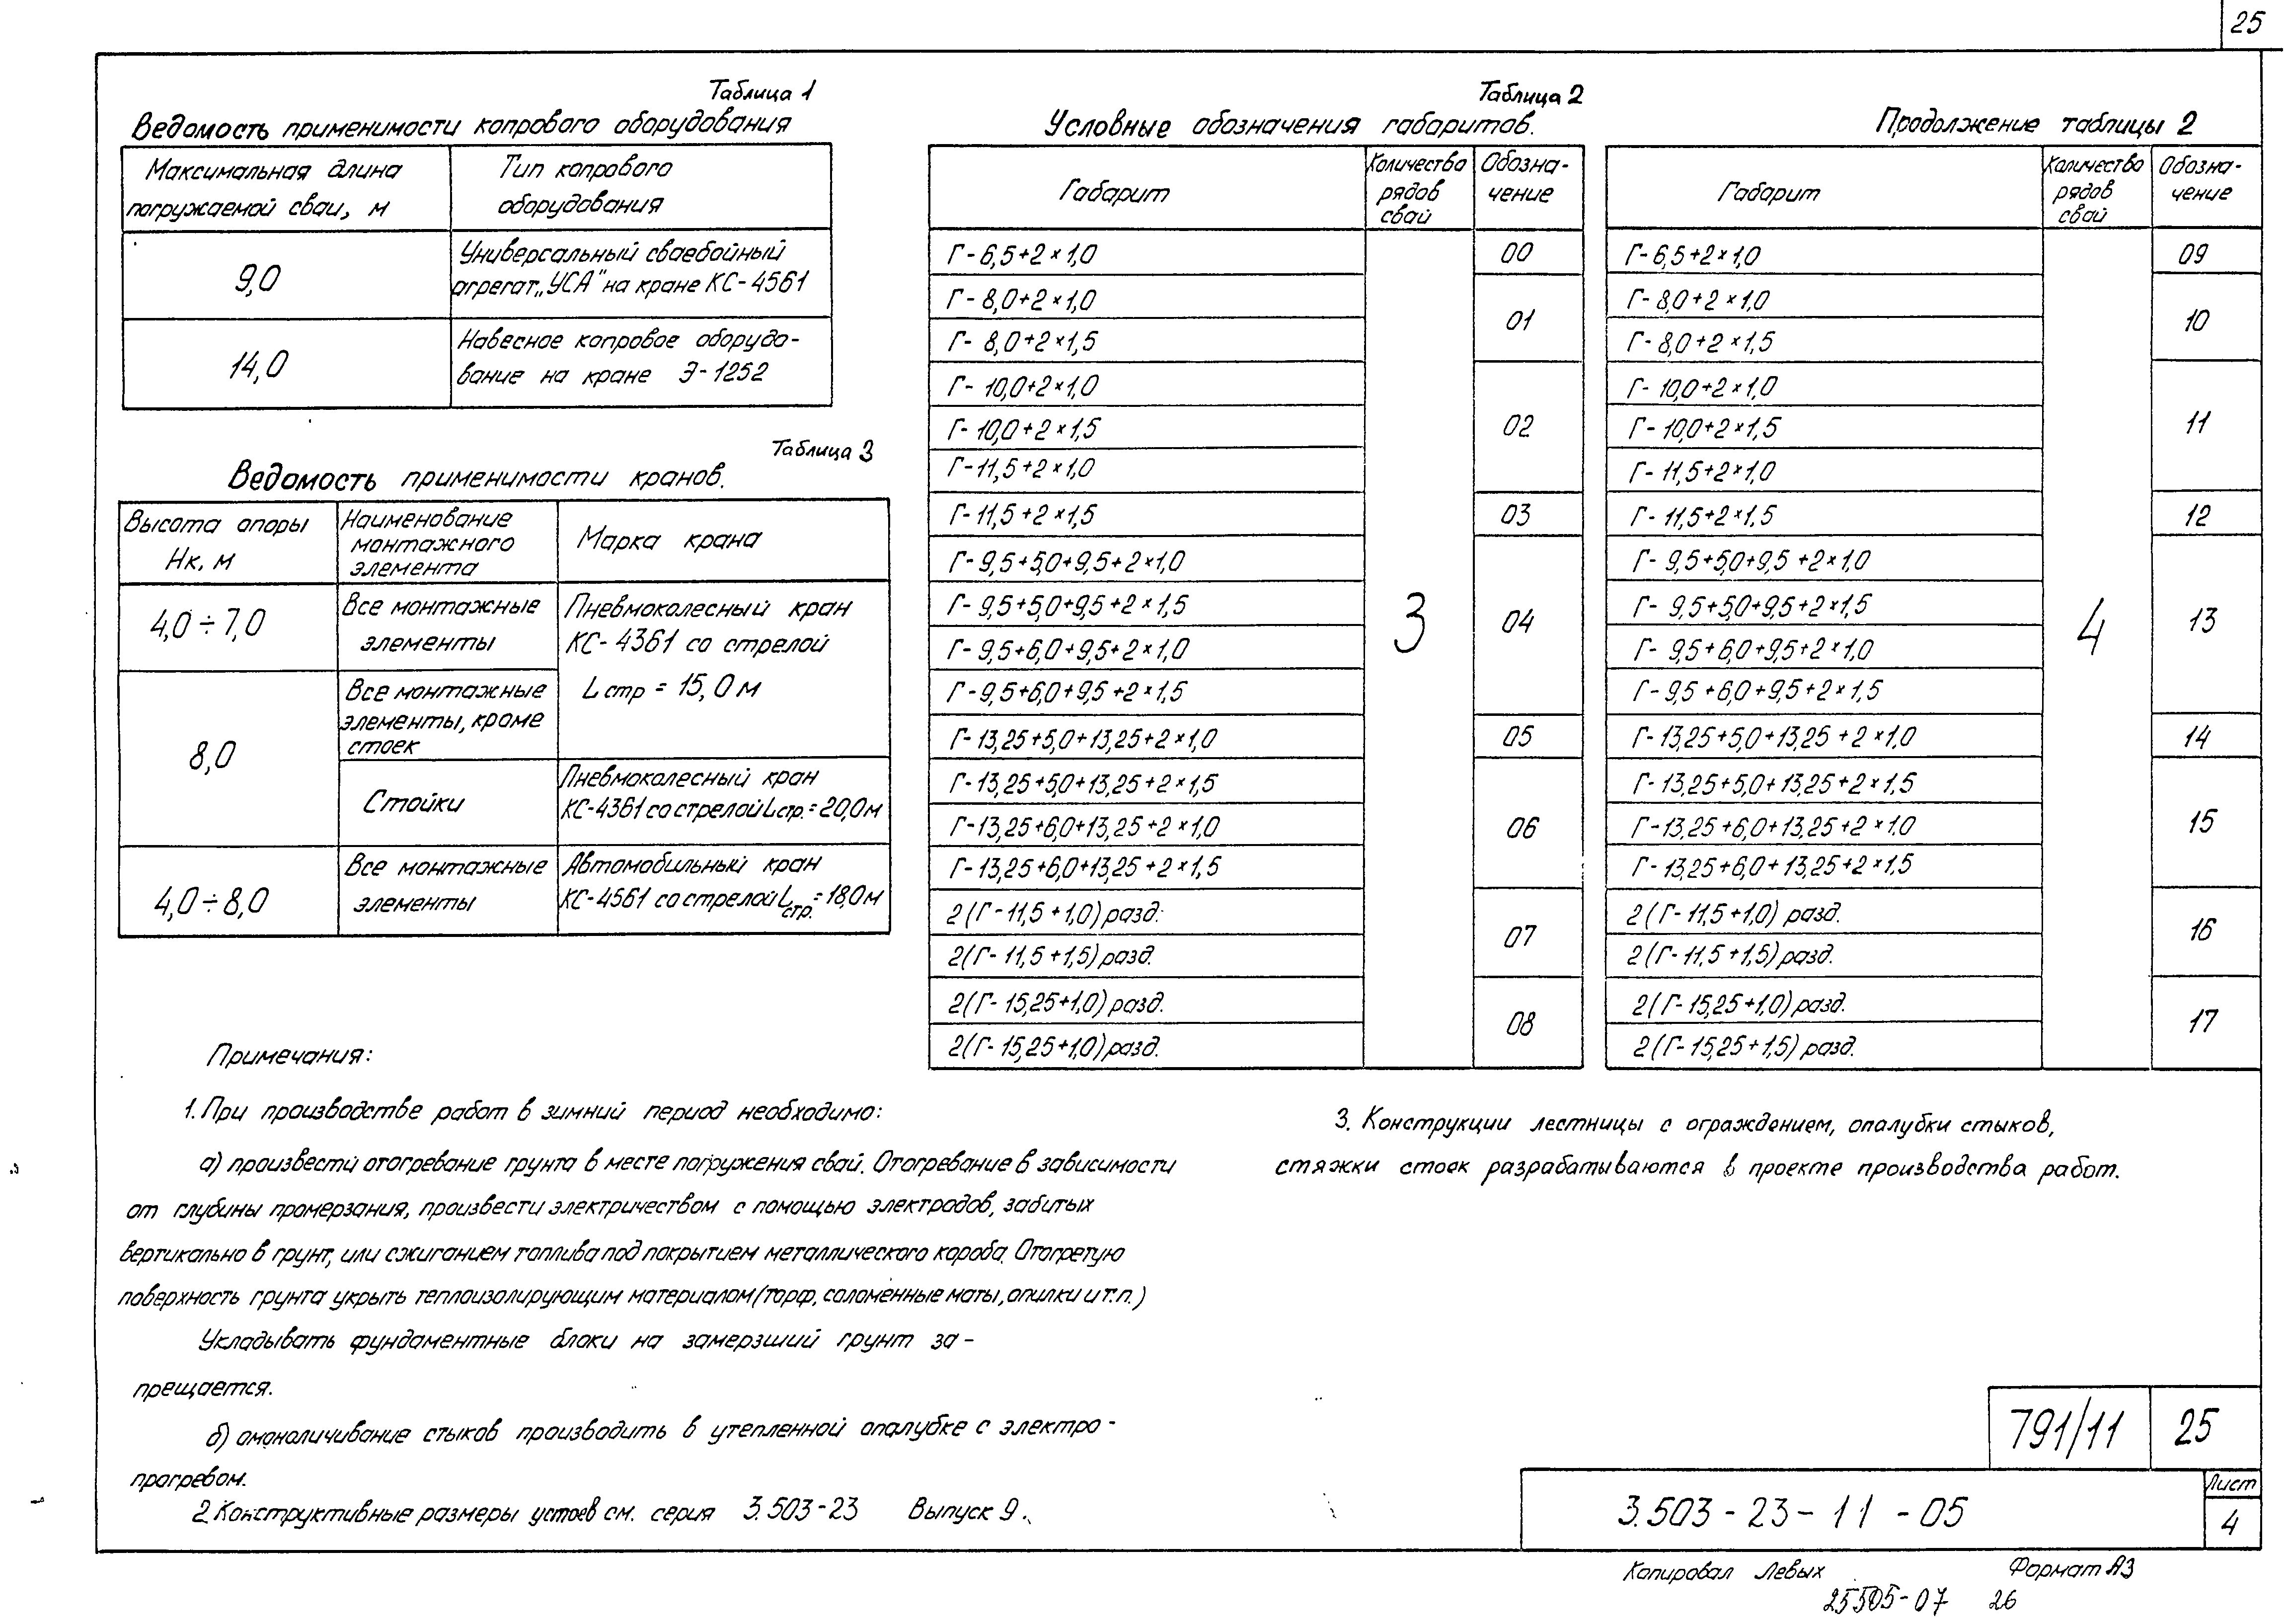 25
Таблица 1
Ведомость применимости копрового оборудования
Максимальная длина
погружаемой сваи, м
Тип копрового
оборудования
9,0
Универсальный сваебойный
агрегат „УСА" на кране КС-4561
14,0
Навесное копровое оборудо-
вание на кране Э-1252
Таблица 3
Ведомость применимости кранов.
Высота опоры
Нк, м
Наименование
монтажного
элемента
Марка крана
4,0÷7,0
Все монтажные
элементы
Пневмоколесный кран
КС-4361 со стрелой
Lстр = 15,0 м
8,0
Все монтажные
элементы, кроме
стоек
Стойки
Пневмоколесный кран
КС-4361 со стрелой Lстр. = 20,0 м
4,0÷8,0
Все монтажные
элементы
Автомобильный кран
КС-4561 со стрелой Lстр. = 18,0 м
Таблица 2
Условные обозначения габаритов.
Габарит
Количество
рядов
свай
Обозна-
чение
Г-6,5+2×1,0
00
Г-8,0+2×1,0
01
Г-8,0+2×1,5
Г-10,0+2×1,0
Г-10,0+2×1,5
02
Г-11,5+2×1,0
Г-11,5+2×1,5
03
Г-9,5+5,0+9,5+2×1,0
Г-9,5+5,0+9,5+2×1,5
3
04
Г-9,5+6,0+9,5+2×1,0
Г-9,5+6,0+9,5+2×1,5
Г-13,25+5,0+13,25+2×1,0
05
Г-13,25+5,0+13,25+2×1,5
Г-13,25+6,0+13,25+2×1,0
06
Г-13,25+6,0+13,25+2×1,5
2(Г-11,5+1,0) разд.
07
2(Г-11,5+1,5) разд.
2(Г-15,25+1,0) разд.
08
2(Г-15,25+1,0) разд.
Продолжение таблицы 2
Габарит
Количество
рядов
свай
Обозна-
чение
Г-6,5+2×1,0
09
Г-8,0+2×1,0
10
Г-8,0+2×1,5
Г-10,0+2×1,0
Г-10,0+2×1,5
11
Г-11,5+2×1,0
Г-11,5+2×1,5
12
Г-9,5+5,0+9,5+2×1,0
Г-9,5+5,0+9,5+2×1,5
4
13
Г-9,5+6,0+9,5+2×1,0
Г-9,5+6,0+9,5+2×1,5
Г-13,25+5,0+13,25+2×1,0
14
Г-13,25+5,0+13,25+2×1,5
Г-13,25+6,0+13,25+2×1.0
15
Г-13,25+6,0+13,25+2×1,5
2(Г-11,5+1,0) разд.
16
2(Г-11,5+1,5) разд.
2(Г-15,25+1,0) разд.
17
2(Г-15,25+1,5) разд.
Примечания:
1. При производстве работ в зимний период необходимо:
а) произвести отогревание грунта в месте погружения свай. Отогревание в зависимости
от глубины промерзания, произвести электричеством с помощью электродов, забитых
вертикально в грунт, или сжиганием топлива под покрытием металлического короба. Отогретую
поверхность грунта укрыть теплоизолирующим материалом (торф, соломенные маты, опилки и т.п.)
Укладывать фундаментные блоки на замерзший грунт за-
прещается.
б) омоноличивание стыков производить в утепленной опалубке с электро-
прогревом.
2. Конструктивные размеры устоев см. серия 3.503-23 Выпуск 9.
3. Конструкции лестницы с ограждением, опалубки стыков,
стяжки стоек разрабатываются в проекте производства работ.
791/11
25
3.503-23-11-05
Лист
4
Копировал Левых
Формат А3
25505-07 26